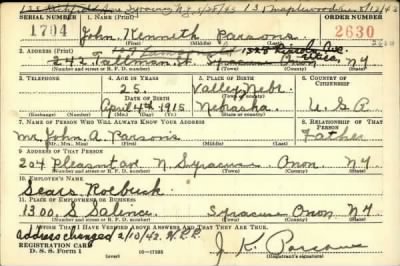 Syracuse N.Y.
SERIAL NUMBER 1. NAME (Print) ORDER NUMBER
1704 John Kenneth Parsons 2630
(First) (Middle) (Last)
2. ADDRESS (Print)
242 Tallman St. Syracuse N.Y.
(Number and street or R. F. D. number) (Town) (County) (State)
3. TELEPHONE 4. AGE IN YEARS 5. PLACE OF BIRTH 6. COUNTRY OF CITIZENSHIP
25 Valley Nebr.
DATE OF BIRTH (Town or county)
April 4th 1915 Nebraska U.S.A.
(Exchange) (Number) (Mo.) (Day) (Yr.) (State or country)
7. NAME OF PERSON WHO WILL ALWAYS KNOW YOUR ADDRESS 8. RELATIONSHIP OF THAT PERSON
Mr. John A. Parsons Father
(Mr., Mrs., Miss) (First) (Middle) (Last)
9. ADDRESS OF THAT PERSON
204 Pleasant av N. Syracuse Onon. N.Y.
(Number and street or R. F. D. number) (Town) (County) (State)
10. EMPLOYER'S NAME
Sears Roebuck
11. PLACE OF EMPLOYMENT OR BUSINESS
1300 S Salence. Syracuse Onon N.Y.
(Number and street or R. F. D. number) (Town) (County) (State)
I AFFIRM THAT I HAVE VERIFIED ABOVE ANSWERS AND THAT THEY ARE TRUE.
address changed 2/10/42
REGISTRATION CARD
D. S. S. Form 1
J. K. Parsons